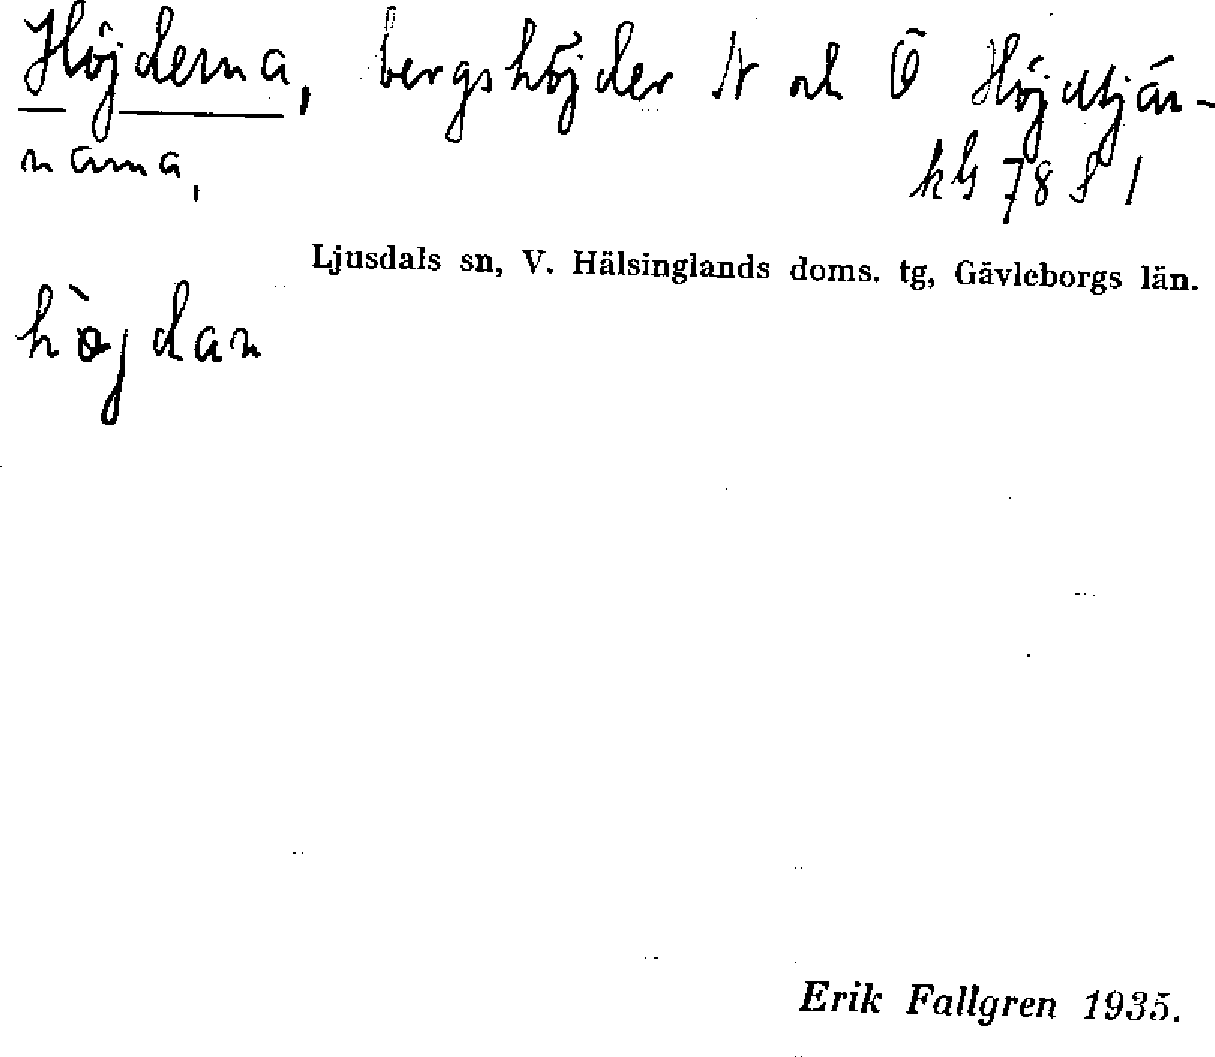 Höjderna, bergshöjder N och Ö Höjdtjär-
narna,
kbl 78 S 1
Ljusdals sn, V. Hälsinglands doms. tg, Gävleborgs län.
hö̀jdan
Erik Fallgren 1935.